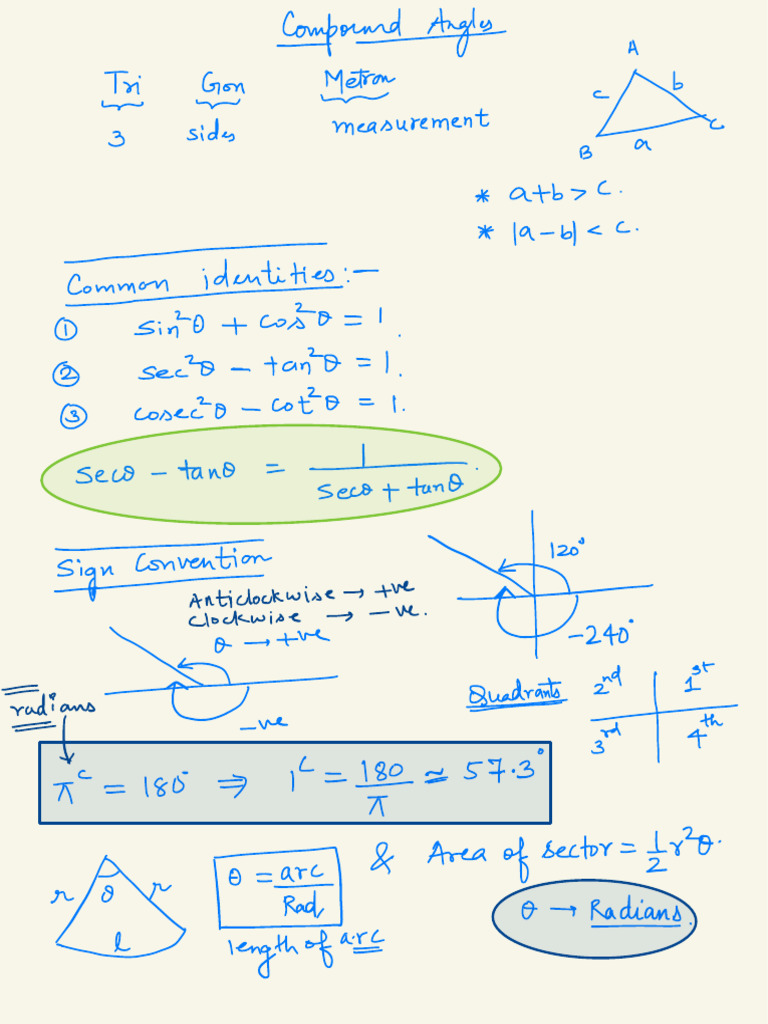 Compound Angles
Tri Gon Metron
3 sides measurement
A
c b
B a C
* a+b > c.
* |a-b| < c.
Common identities:-
① sin²θ + cos²θ = 1.
② sec²θ - tan²θ = 1.
③ cosec²θ - cot²θ = 1.
secθ - tanθ = 1/(secθ + tanθ).
Sign Convention
Anticlockwise → +ve
Clockwise → -ve.
θ → +ve
-ve
120°
-240°
Quadrants
2nd 1st
3rd 4th
radians
π^c = 180° ⇒ 1^c = 180/π ≃ 57.3°
r θ r
l
θ = arc/Rad & Area of sector = 1/2 r²θ.
length of arc
θ → Radians.